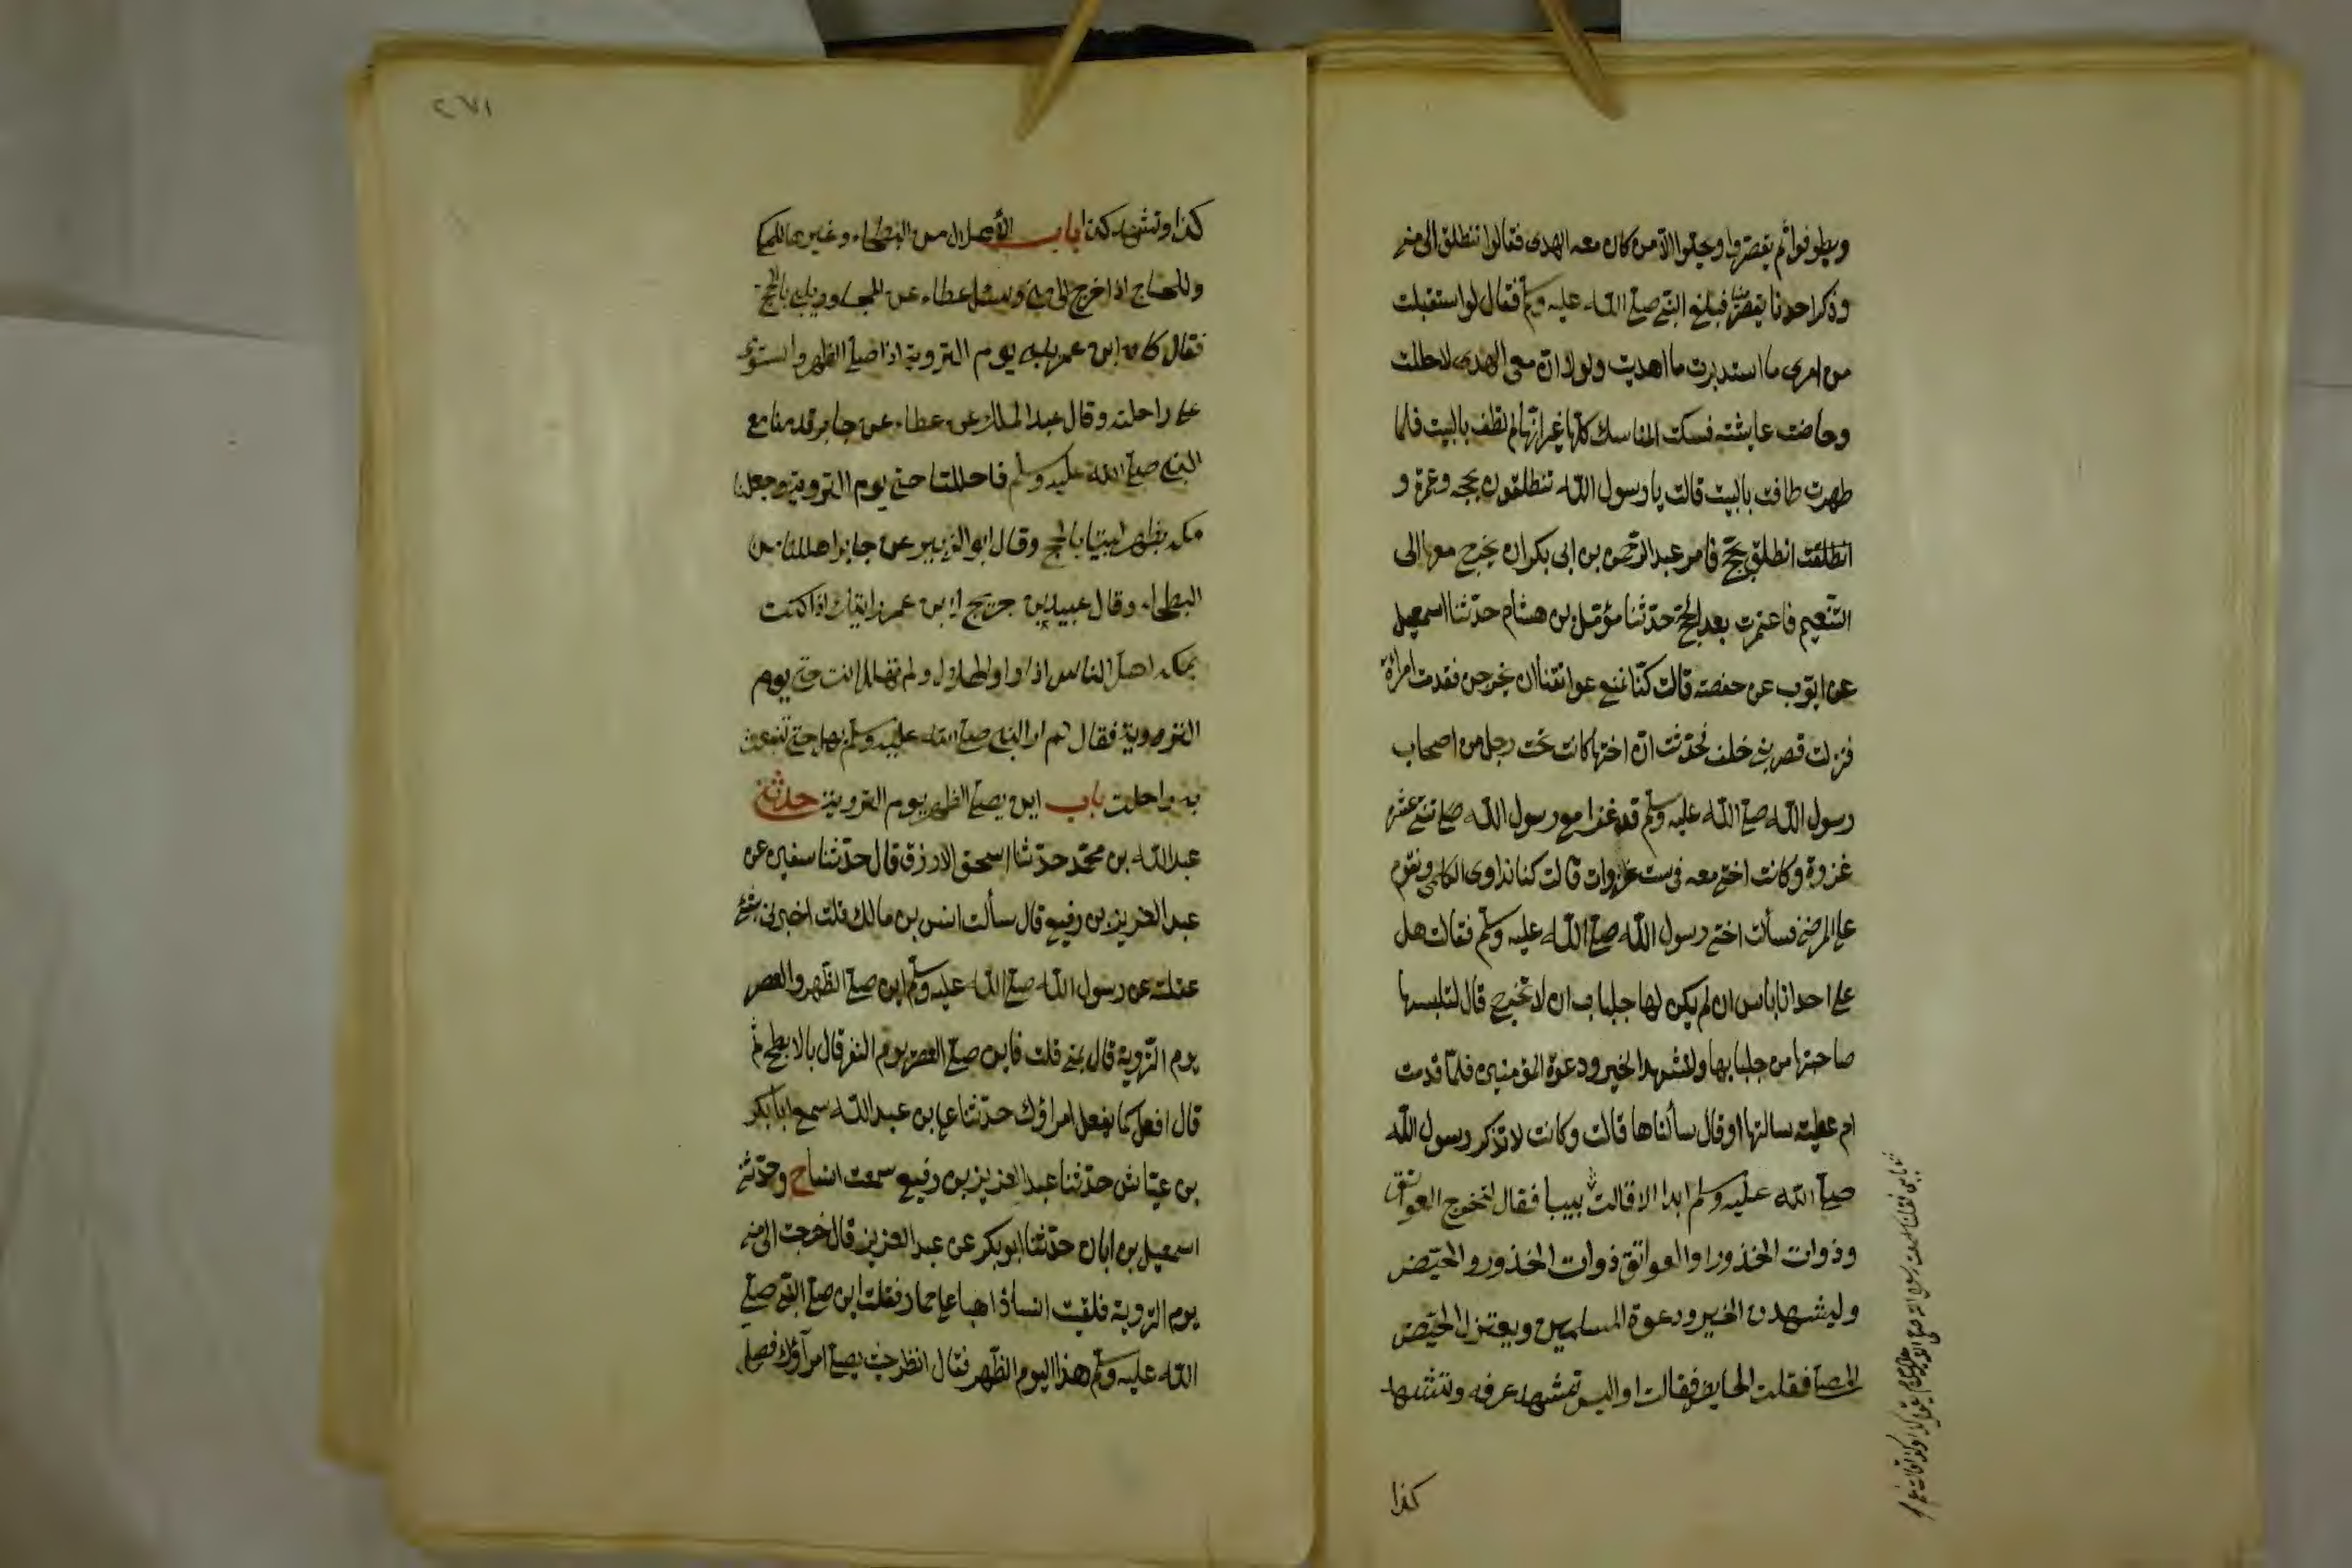 ويطوفوا ثم يقصروا ويحلوا الا من كان معه الهدى فقالوا ننطلق الى منى
وذكر احدنا يقطر منيا فبلغ النبي صلى الله عليه وسلم فقال لو استقبلت
من امرى ما استدبرت ما اهديت ولولا ان معى الهدى لاحللت
وحاضت عايشة فنسكت المناسك كلها غير انها لم تطف بالبيت فلما
طهرت طافت بالبيت قالت يا رسول الله تنطلقون بحجة وعمرة و
انطلق بحج فامر عبد الرحمن بن ابى بكر ان يخرج معها الى
التنعيم فاعتمرت بعد الحج حدثنا مؤمل بن هشام حدثنا اسمعيل
عن ايوب عن حفصة قالت كنا نمنع عواتقنا ان يخرجن فقدمت امرأة
فنزلت قصر بنى خلف فحدثت ان اختها كانت تحت رجل من اصحاب
رسول الله صلى الله عليه وسلم قد غزا مع رسول الله صلى ثنتى عشرة
غزوة وكانت اختى معه فى ست غزوات قالت كنا نداوى الكلمى ونقوم
على المرضى فسألت اختى رسول الله صلى الله عليه وسلم فقالت هل
على احدانا باس ان لم يكن لها جلباب ان لا تخرج قال لتلبسها
صاحبتها من جلبابها ولتشهد الخير ودعوة المؤمنين فلما قدمت
ام عطية سالتها او قال سألناها قالت وكانت لا تذكر رسول الله
صلى الله عليه وسلم ابدا الا قالت بيبا فقال لتخرج العواتق
وذوات الخذور او العواتق ذوات الخذور والحيض
وليشهدن الخير ودعوة المسلمين ويعتزل الحيض
المصلى فقلت الحايض فقالت او اليس تشهد عرفه وتشهد
كذا
٢٧١
كذا وتشهد كذا باب الأهلال من البطحاء وغيرها للمكى
وللحاج اذا خرج الى منى وسئل عطاء عن المجاور يلبى بالحج
فقال كان ابن عمر يلبى يوم التروية اذا صلى الظهر واستوى
على راحلته وقال عبد الملك عن عطاء عن جابر قدمنا مع
النبي صلى الله عليه وسلم فاحللنا حتى يوم التروية وجعلنا
مكة بظهر لبينا بالحج وقال ابو الزبير عن جابر اهللنا من
البطحاء وقال عبيد بن جريج لابن عمر رايتك اذا كنت
بمكه اهل الناس اذا راوا الهلال ولم تهل انت حتى يوم
التروية فقال لم ار النبي صلى الله عليه وسلم يهل حتى تنبعث
به راحلته باب اين يصلى الظهر يوم التروية حدثنى
عبد الله بن محمد حدثنا اسحق الازرق قال حدثنا سفين عن
عبد العزيز بن رفيع قال سألت انس بن مالك قلت اخبرنى بشئ
عقلته عن رسول الله صلى الله عليه وسلم اين صلى الظهر والعصر
يوم التروية قال بمنى قلت فاين صلى العصر يوم النفر قال بالابطح ثم
قال افعل كما يفعل امراؤك حدثنا على بن عبد الله سمع ابا بكر
بن عياش حدثنا عبد العزيز بن رفيع سمعت انسا ح وحدثنى
اسمعيل بن ابان حدثنا ابو بكر عن عبد العزيز قال خرجت الى منى
يوم التروية فلقيت انسا ذاهبا على حمار فقلت اين صلى النبي صلى
الله عليه وسلم هذا اليوم الظهر فقال انظر حيث يصلى امرآؤك فصل